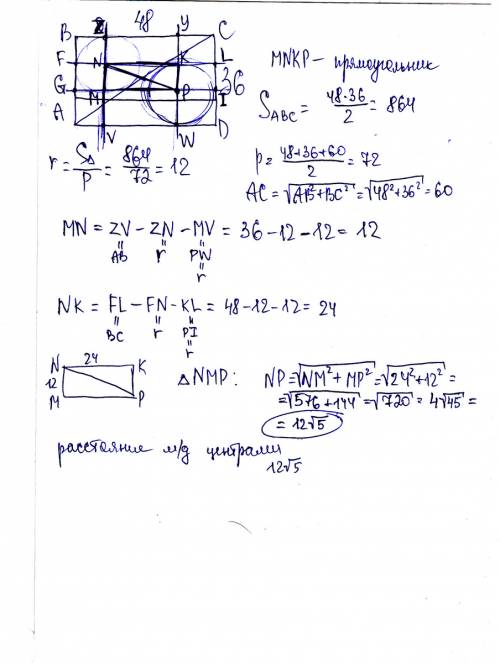 48
B Z Y C
F N K L
G M P I 36
A V W D
MNKP – прямоугольник
S_ABC = 48·36/2 = 864
r = S_Δ/P = 864/72 = 12
p = 48+36+60/2 = 72
AC = √AB²+BC² = √48²+36² = 60
MN = ZV – ZN – MV = 36 – 12 – 12 = 12
AB r PW
r
NK = FL – FN – KL = 48 – 12 – 12 = 24
BC r PI
r
N 24 K
12
M P
Δ NMP:
NP = √NM² + MP² = √24² + 12² =
= √576 + 144 = √720 = 4√45 =
= 12√5
расстояние м/д центрами
12√5